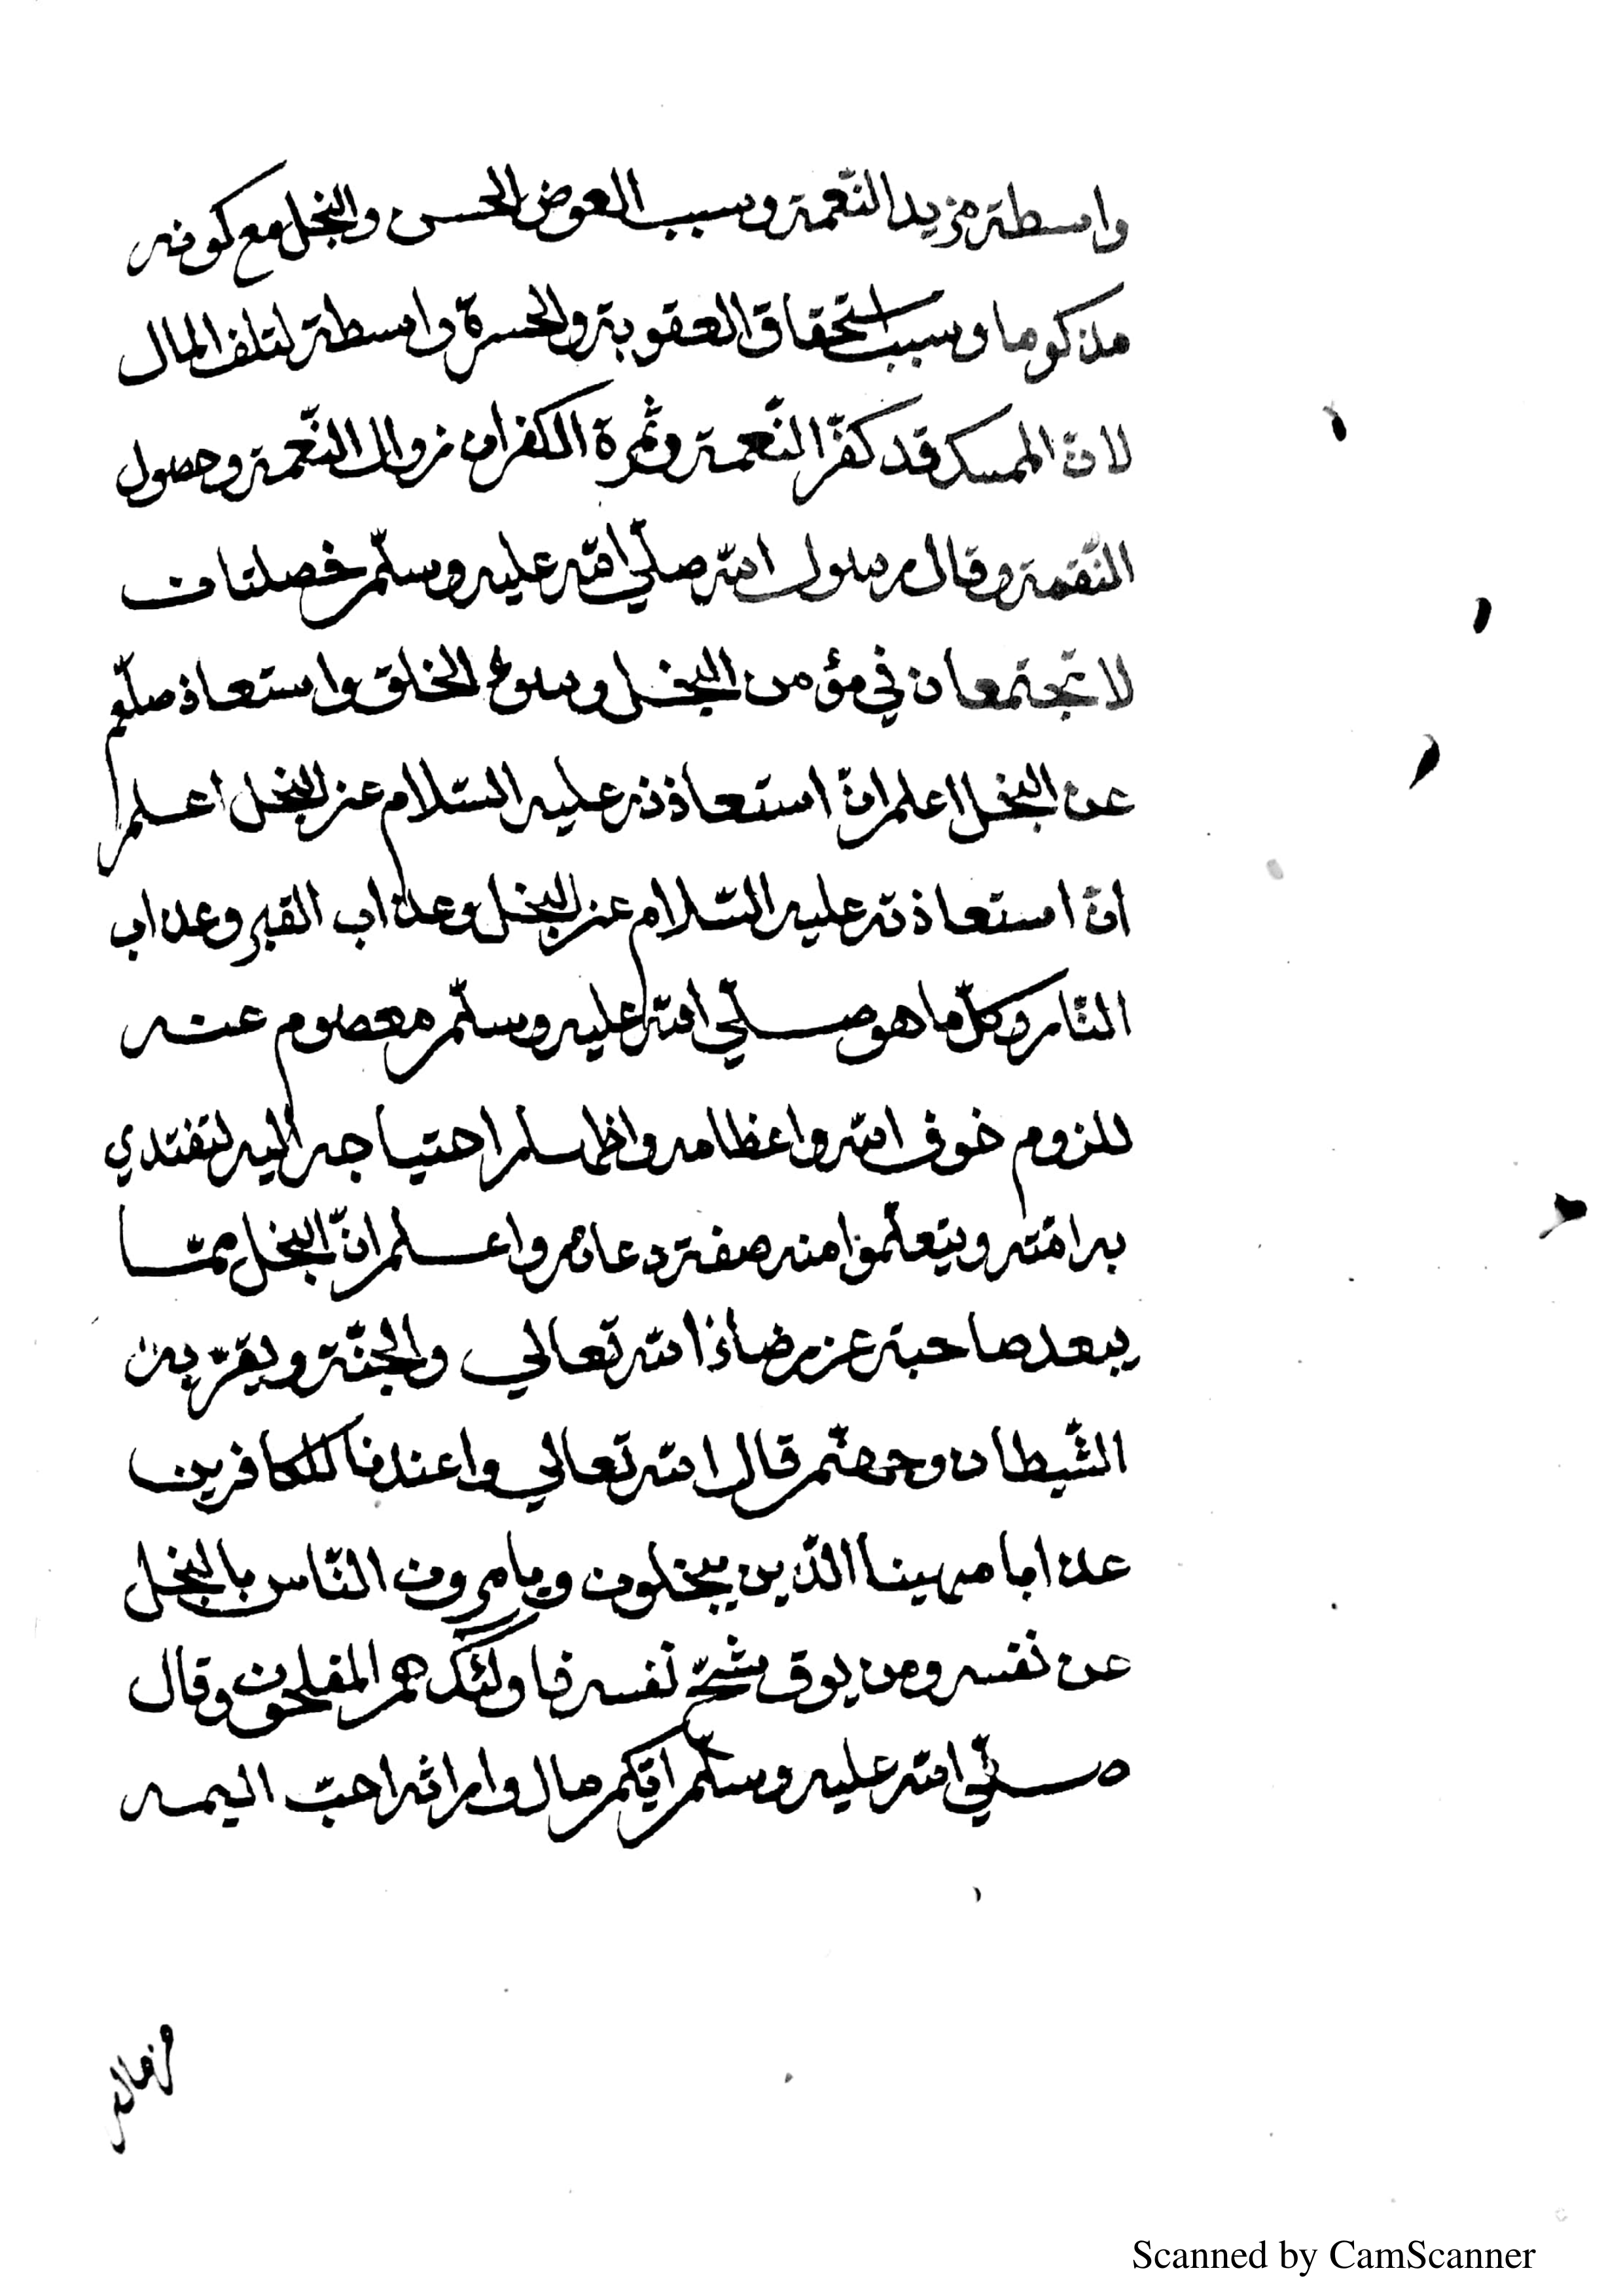 واسطة مزيد النّعمة وسبب العوض الحسن والبخل مع كونه
مذكوما وسبب استحقاق العقوبة والحسرة واسطة لتلف المال
لانّ الممسك قد كفر النّعمة وثمرة الكفران زوال النّعمة وحصول
النّقمة وقال رسول الله صلّي الله عليه وسلّم خصلتان
لا تجتمعان في مؤمن البخل وسوء الخلق واستعاذ صلّعم
عن البخل اعلم انّ استعاذته عليه السّلام عن البخل اعلم
انّ استعاذته عليه السّلام عن البخل وعذاب القبر وعذاب
النّار وكلّ ما هو صلّي الله عليه وسلّم معصوم عنه
للزوم خوف الله واعظامه واظهار احتياجه اليه لتقتدي
به امّته ويتعلّموا منه صفة دعائهم واعلم انّ البخل ممّا
يبعد صاحبه عن رضاء الله تعالي والجنّة ويقرّب من
الشّيطان وجهنّم قال الله تعالي واعتدنا للكافرين
عذابا مهينا الّذين يبخلون ويامرون النّاس بالبخل
عن نفسه ومن يوق شحّ نفسه فاولئك هم المفلحون وقال
صلّي الله عليه وسلّم ايّكم مال وارثه احبّ اليه
من ماله
Scanned by CamScanner